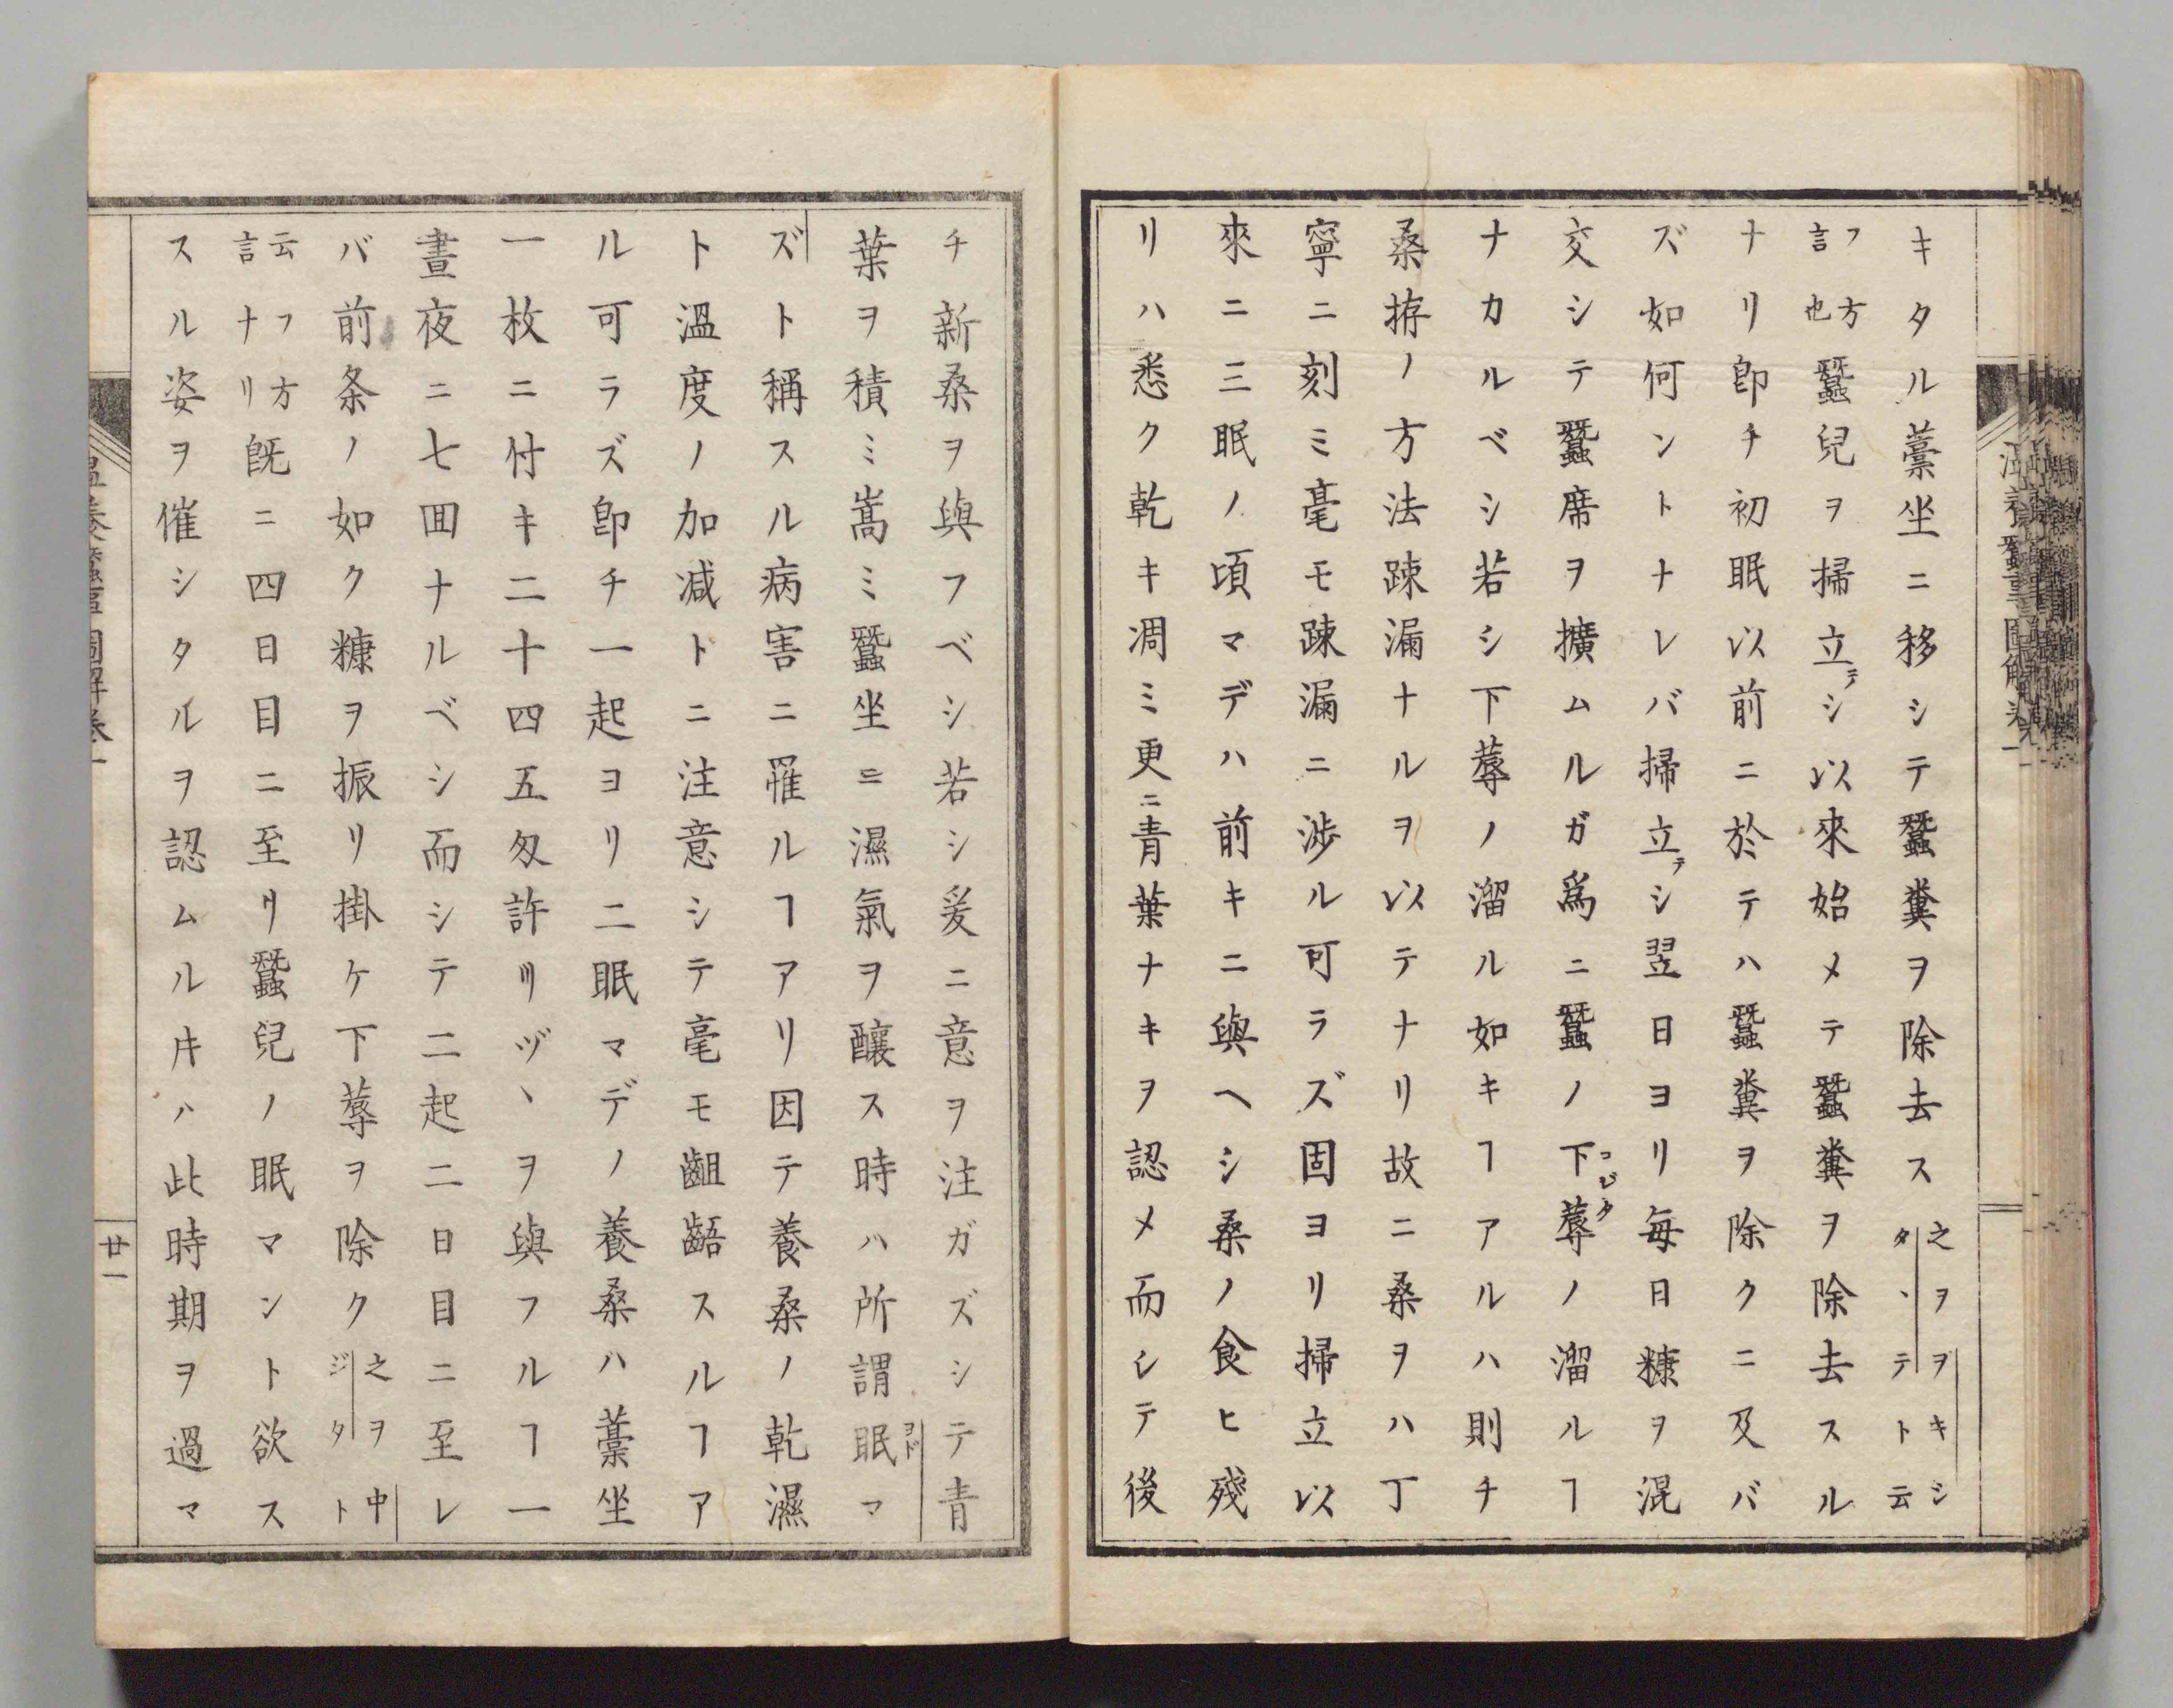 キタル藁坐ニ移シテ蠶糞ヲ除去ス之ヲヲキシタヽテト云
フ方言也蠶兒ヲ掃立テシ以來始メテ蠶糞ヲ除去スル
ナリ卽チ初眠以前ニ於テハ蠶糞ヲ除クニ及バ
ズ如何ントナレバ掃立テシ翌日ヨリ毎日糠ヲ混
交シテ蠶席ヲ擴ムルガ爲ニ蠶ノ下蓐コジタノ溜ルヿ
ナカルベシ若シ下蓐ノ溜ル如キヿアルハ則チ
桑拵ノ方法疎漏ナルヲ以テナリ故ニ桑ヲハ丁
寧ニ刻ミ毫モ疎漏ニ渉ル可ラズ固ヨリ掃立以
來二三眠ノ頃マデハ前キニ與ヘシ桑ノ食ヒ殘
リハ悉ク乾キ凋ミ更ニ青葉ナキヲ認メ而シテ後
チ新桑ヲ與フベシ若シ爰ニ意ヲ注ガズシテ青
葉ヲ積ミ嵩ミ蠶坐ニ濕氣ヲ釀ス時ハ所謂眠マ
ズト稱スル病害ニ罹ルヿアリ因テ養桑ノ乾濕
ト溫度ノ加減トニ注意シテ毫モ齟齬スルヿア
ル可ラズ卽チ一起ヨリ二眠マデノ養桑ハ藁坐
一枚ニ付キ二十四五匁許リヅヽヲ與フルヿ一
晝夜ニ七囬ナルベシ而シテ二起二日目ニ至レ
バ前条ノ如ク糠ヲ振リ掛ケ下蓐ヲ除ク之ヲ中ジタト
云フ方言ナリ既ニ四日目ニ至リ蠶兒ノ眠マント欲ス
スル姿ヲ催シタルヲ認ムル时ハ此時期ヲ過マ
廿一